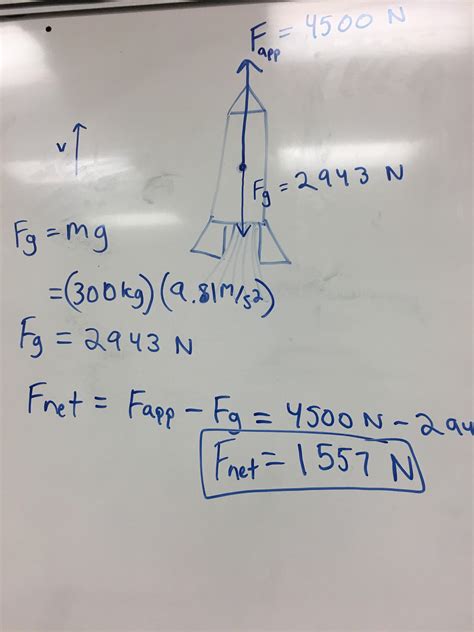 Fapp = 4500 N
v
Fg = 2943 N
Fg = mg
= (300kg) (9.81m/s2)
Fg = 2943 N
Fnet = Fapp - Fg = 4500 N - 294
Fnet = 1557 N